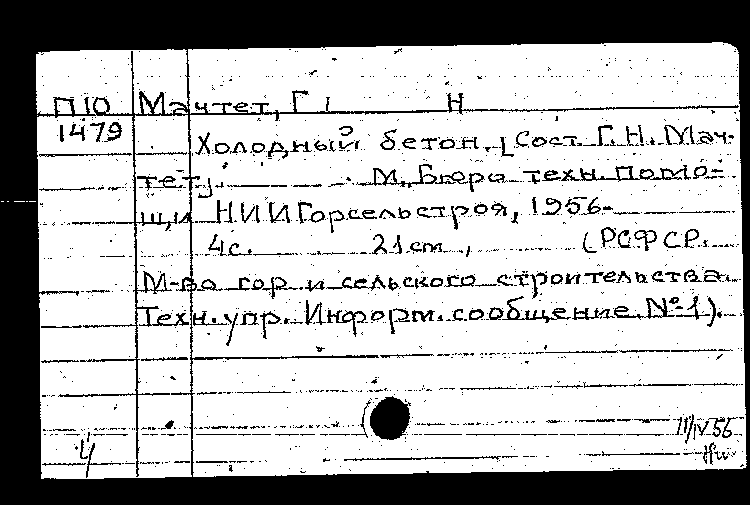 П10 Мачтет, Г Н
1479
Холодный бетон. [Сост. Г. Н. Мач-
тет].  М., Бюро техн. помо-
щи НИИГорсельстроя, 1956.
4с. 21 cm, (РСФСР.
М-во гор и сельского строительства.
Техн. упр. Информ. сообщение. № 1).
11/IV 56
4